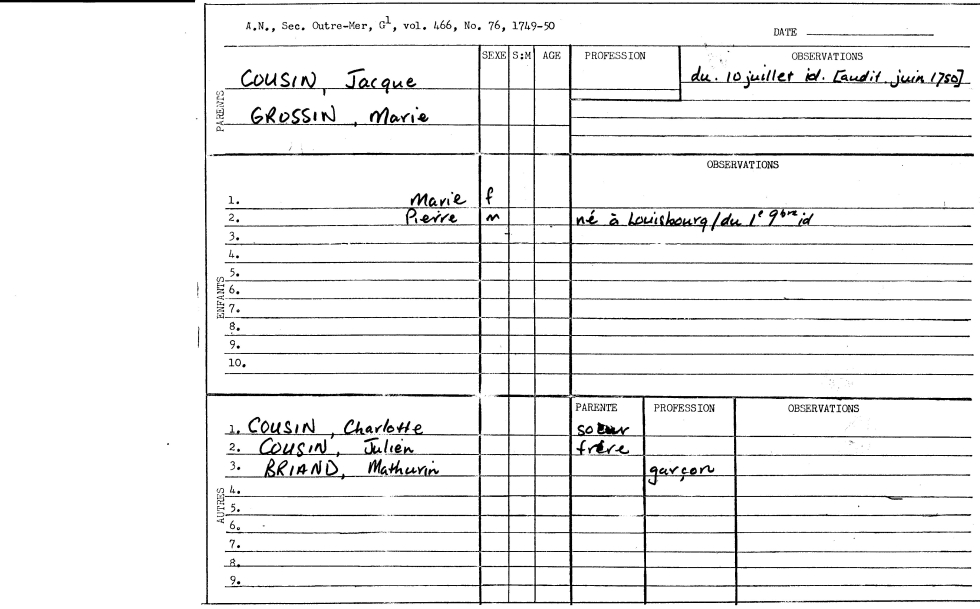 A.N., Sec. Outre-Mer, G1, vol. 466, No. 76, 1749-50
DATE
SEXE S:M AGE PROFESSION OBSERVATIONS
PARENTS
COUSIN, Jacque du. 10 juillet id. [audit. juin 1750]
GROSSIN, Marie
OBSERVATIONS
ENFANTS
1. Marie f
2. Pierre m né à Louisbourg/du 1e 9bre id
3.
4.
5.
6.
7.
8.
9.
10.
PARENTE PROFESSION OBSERVATIONS
AUTRES
1. COUSIN, Charlotte soeur
2. COUSIN, Julien frère
3. BRIAND, Mathurin garçon
4.
5.
6.
7.
8.
9.